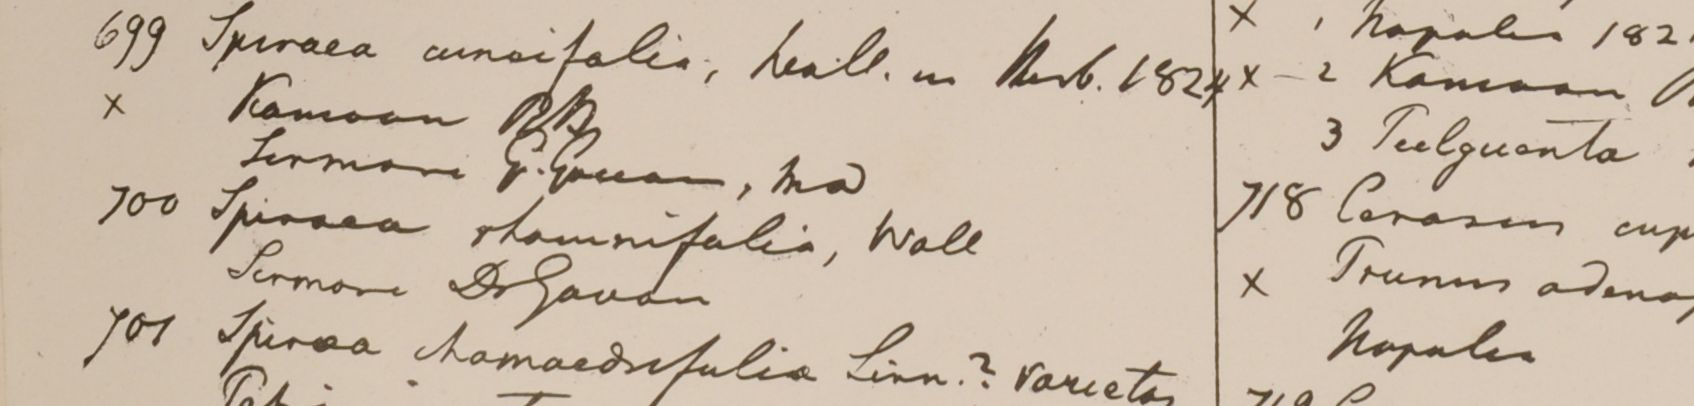 699 Spiraea cuneifolia, Wall. in Herb. 1824
x Kamoon RB
Sirmore G. Govan, MD
700 Spiraea rhamnifolia, Wall
Sirmore Dr Govan
701 Spiraea chamaedrifolia Linn.? varietas
x 1 Napalia 182
x - 2 Kamoon
3 Tulguanta
718 Cerasus cup
x Prunus adeno
Napalia
719